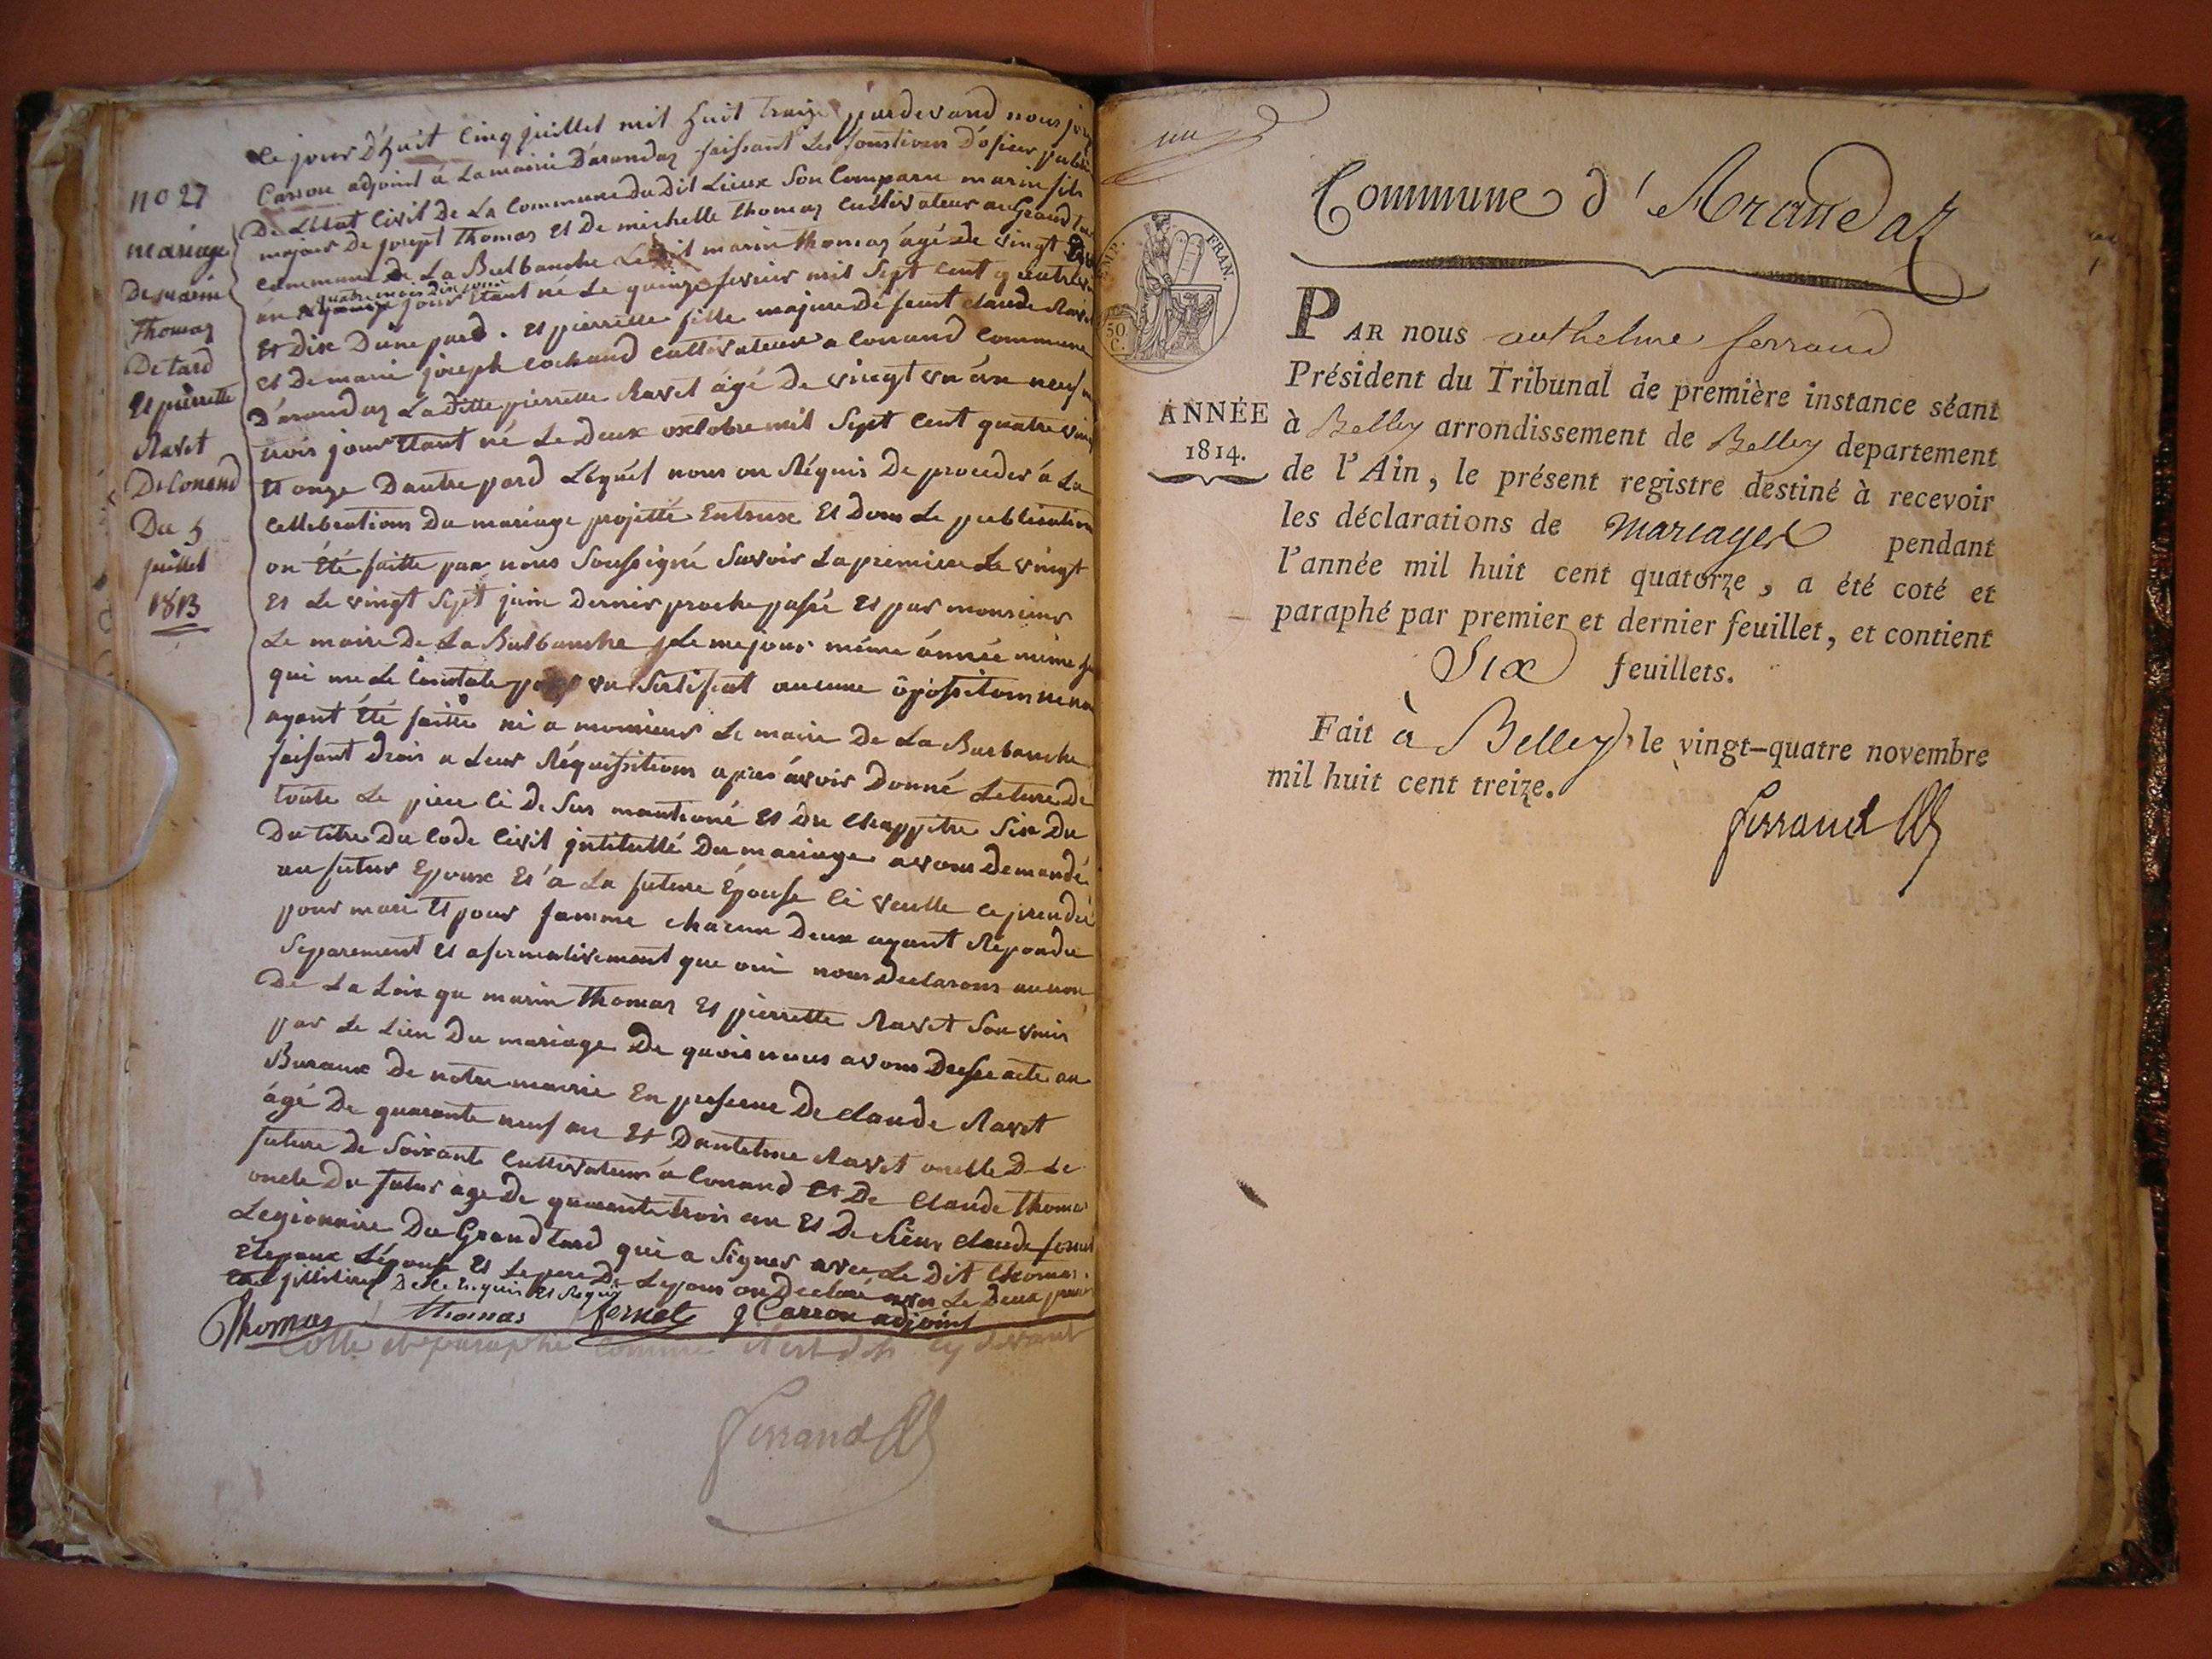 no 27
mariage
De marin
Thomas
De tard
Et pierrette
Ravet
De Conand
Du 5
juillet
1813
Le jour d'huit Cinq juillet mil huit traize pardevand nous
Carron adjoint á La mairie D'arandaz faissant Les fonstions D'oficier public
De L'état Civil De La Commune du Dit Lieux Son Comparu marin fils
majeur De joseph Thomas Et De michelle thomas Cultivateur au Grand tard
Commune De La Bulbanche Ledit marin thomas agé de vingt
án quatre mois dix jour Etant né Le quinze fevrier mil Sept Cent quatre
Et Dix Dune pard. Et pierrette fille majeure De feut claude Ravet
Et De marie joseph Cochaud Cultivateur a Conand Commune
D'arandaz La ditte pierrette Ravet ágé De vingt un án neuf
trois jour Etant né Le Deux oxtobre mil Sept Cent quatre vingt
Et onze Dautre pard Léquél nous on Réquis De proceder á La
Cellebrations Du mariage projetté Entreux Et Dons Le publications
on Été faitte par nous Soussigné Savoir La premiere Le vingt
Et Le vingt Sept juin Dernier proche passé Et par monsieur
Le maire De La Bulbanche Le mejour méme ánnée
qui me Le Constate un Sertificat aucune ôpossitions
ayant Été faitte ni a monsieur Le maire De La Burbanche
faisant Drois a Leur Réquissitions apres ávoir Donné Leture De
toute Le piece Ci De Sus mantioné Et Du Chappitre Six Du
Du titre Du Code Civil jntitullé Du mariage avons Demandé
au futur Epoux Et á La future Épouse Ci veulle ce prendre
pour mari Et pour famme chacun Deux ayant Répondu
Séparement Et afirmativemant que oui nous Declarons au nom
De La Loix qu marin thomas Et pierrette Ravet Son unis
par Le Lien Du mariage De quois nous avons Dresse acte au
Buraux De notre mairie En presence De claude Ravet
ágé De quarante neuf ans Et Dantelme Ravet oncle De Le
future De Soixante Cultivateur á Conand Et De Claude thomas
oncle Du futur age De quarante trois an Et De Sieur Claude fornet
Legionnaire Du Grand tard qui a Signer avec Le Dit thomas
Et epoux L'épouse Et Le pere De Lepoux on Declaré Le Deux
De Ce Enquis Et Requis
Thomas thomas fornet J Carron adjoint
Cotté et paraphé comme il est dit cy devant
Ferrand
un
Commune d'Arandaz
IMP. FRAN.
50. C.
ANNÉE
1814.
PAR nous anthelme ferrand
Président du Tribunal de première instance séant
à Belley arrondissement de Belley departement
de l'Ain, le présent registre destiné à recevoir
les déclarations de mariages pendant
l'année mil huit cent quatorze, a été coté et
paraphé par premier et dernier feuillet, et contient
Six feuillets.
Fait à Belley, le vingt-quatre novembre
mil huit cent treize.
Ferrand